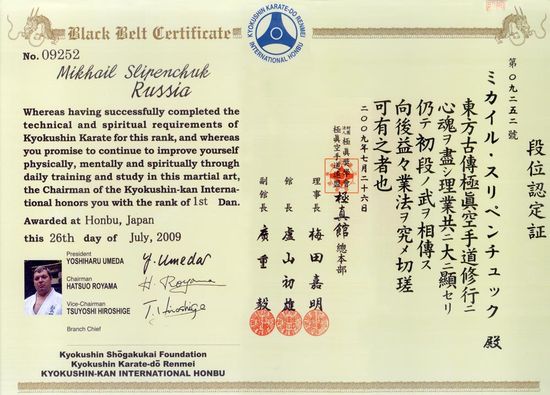 Black Belt Certificate
KYOKUSHIN KARATE-DO RENMEI
INTERNATIONAL HONBU
No. 09252
Mikhail Slipenchuk
Russia
Whereas having successfully completed the
technical and spiritual requirements of
Kyokushin Karate for this rank, and whereas
you promise to continue to improve yourself
physically, mentally and spiritually through
daily training and study in this martial art,
the Chairman of the Kyokushin-kan Interna-
tional honors you with the rank of 1st Dan.
Awarded at Honbu, Japan
this 26th day of July, 2009
President
YOSHIHARU UMEDA
Y. Umeda
Chairman
HATSUO ROYAMA
H. Royama
Vice-Chairman
TSUYOSHI HIROSHIGE
T. Hiroshige
Branch Chief
Kyokushin Shōgakukai Foundation
Kyokushin Karate-dō Renmei
KYOKUSHIN-KAN INTERNATIONAL HONBU
段位認定証
第〇九二五二號
ミカイル・スリペンチュック 殿
東方古傳極真空手道修行ニ
心魂ヲ盡シ理業共ニ大ニ顯セリ
仍テ初段ノ武ヲ相傳ス
向後益々業法ヲ究メ切瑳
可有之者也
二〇〇九年七月二十六日
極真奨学会
極真空手道連盟
極真館 總本部
理事長 梅田嘉明
館長 盧山初雄
副館長 廣重毅